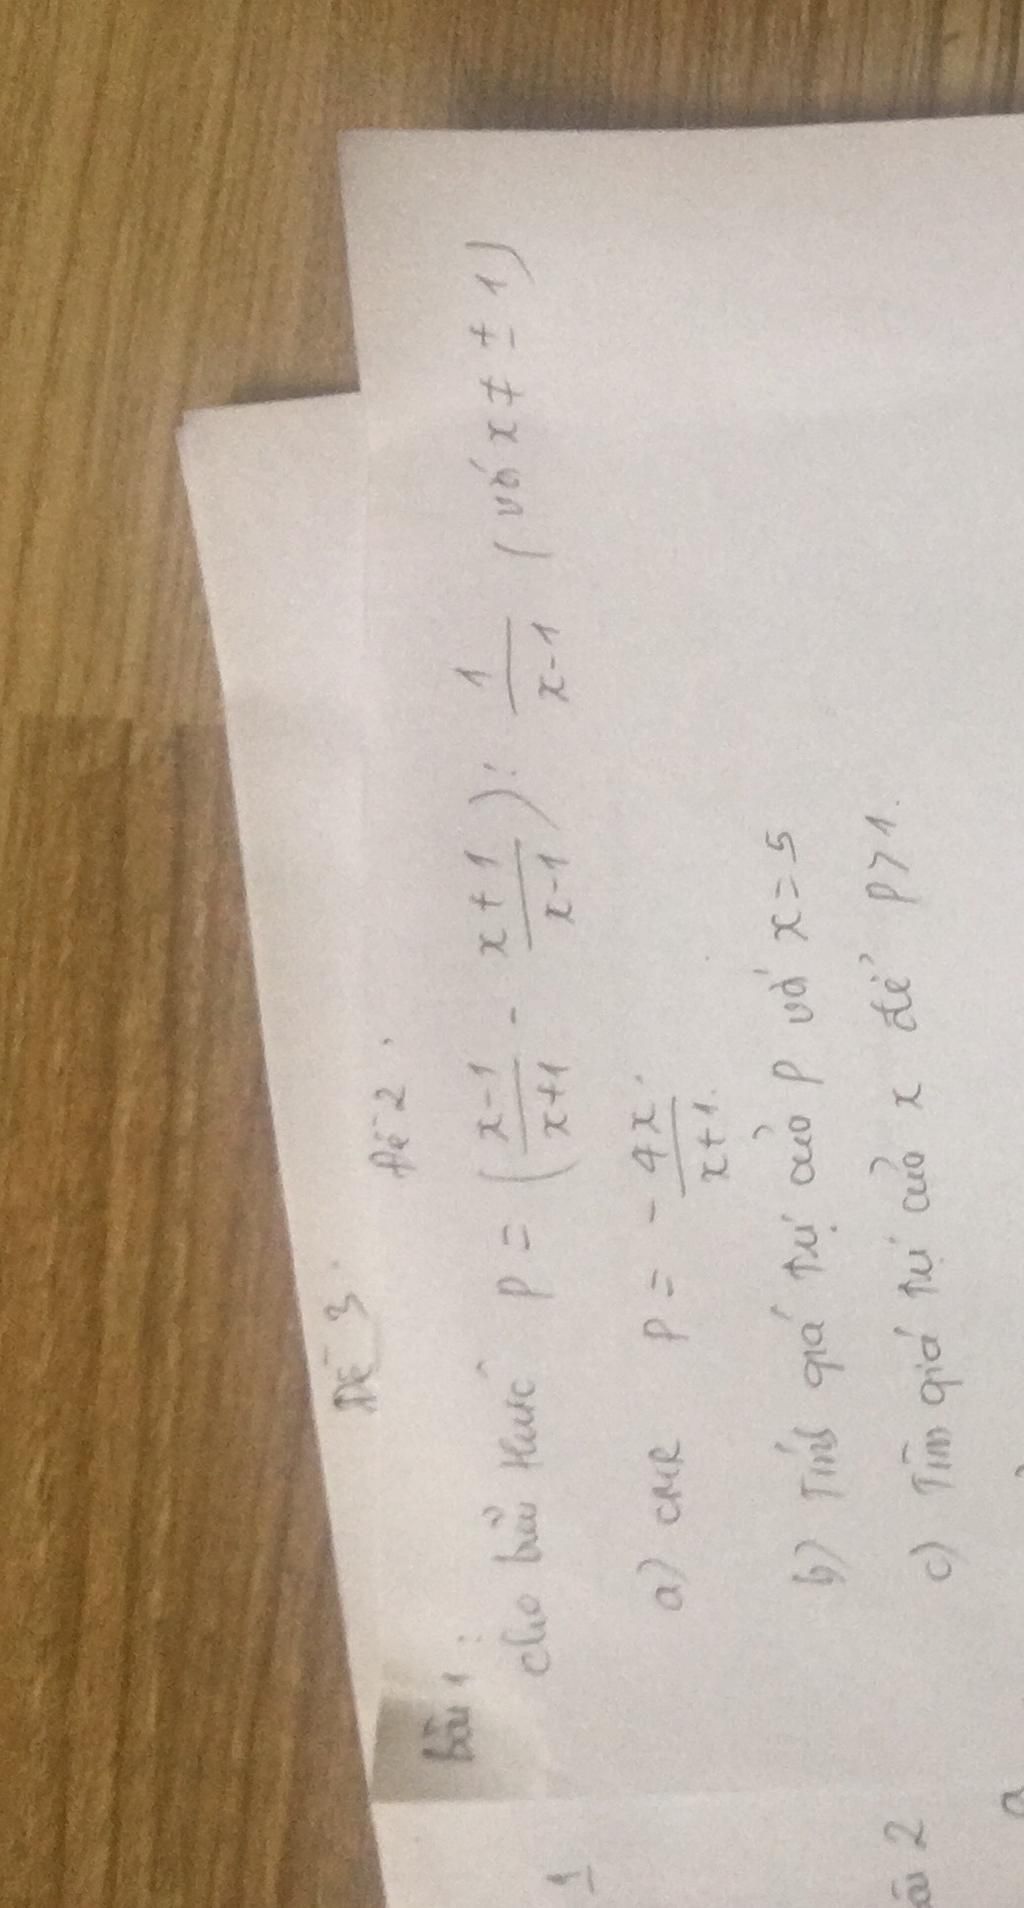 Đề 3.
Đề 2.
Bài 1:
cho biểu thức P = ( \frac{x-1}{x+1} - \frac{x+1}{x-1} ) : \frac{1}{x-1} ( với x ≠ ± 1 )
a) CMR P = - \frac{4x}{x+1}.
b) Tính giá trị của P với x = 5
c) Tìm giá trị của x để P > 1.
1
2
a